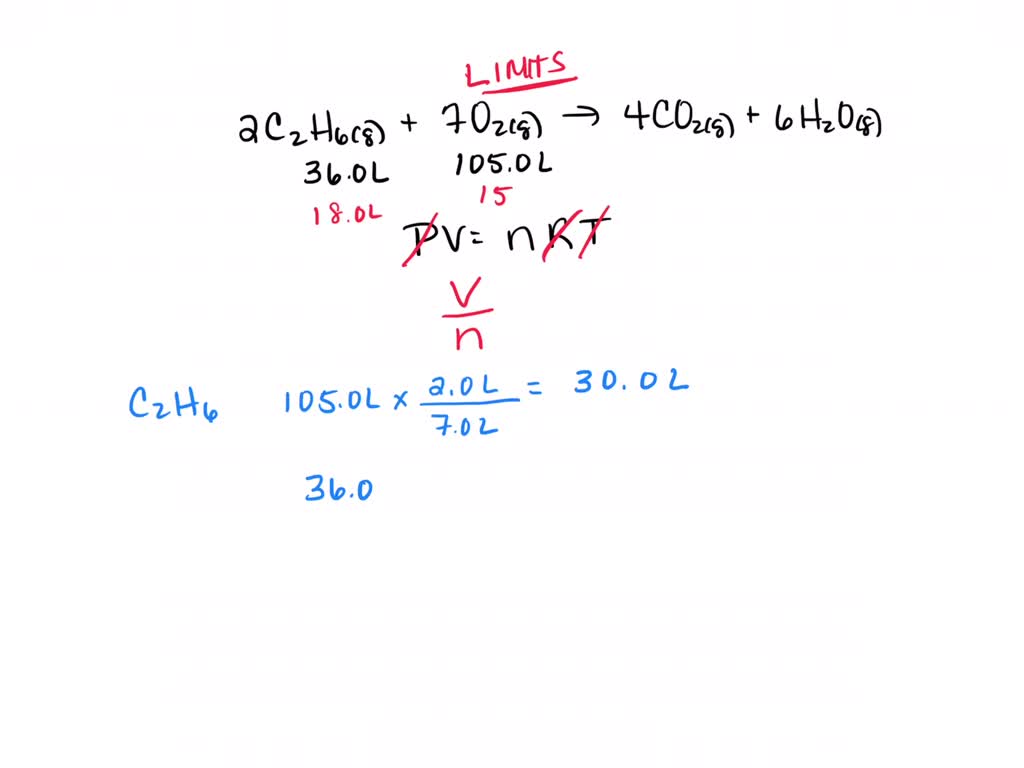 LIMITS
2C₂H₆(g) + 7O₂(g) → 4CO₂(g) + 6H₂O(g)
36.0L 105.0L
18.0L 15
PV = nRT
V
n
C₂H₆ 105.0L x 2.0L/7.0L = 30.0L
36.0